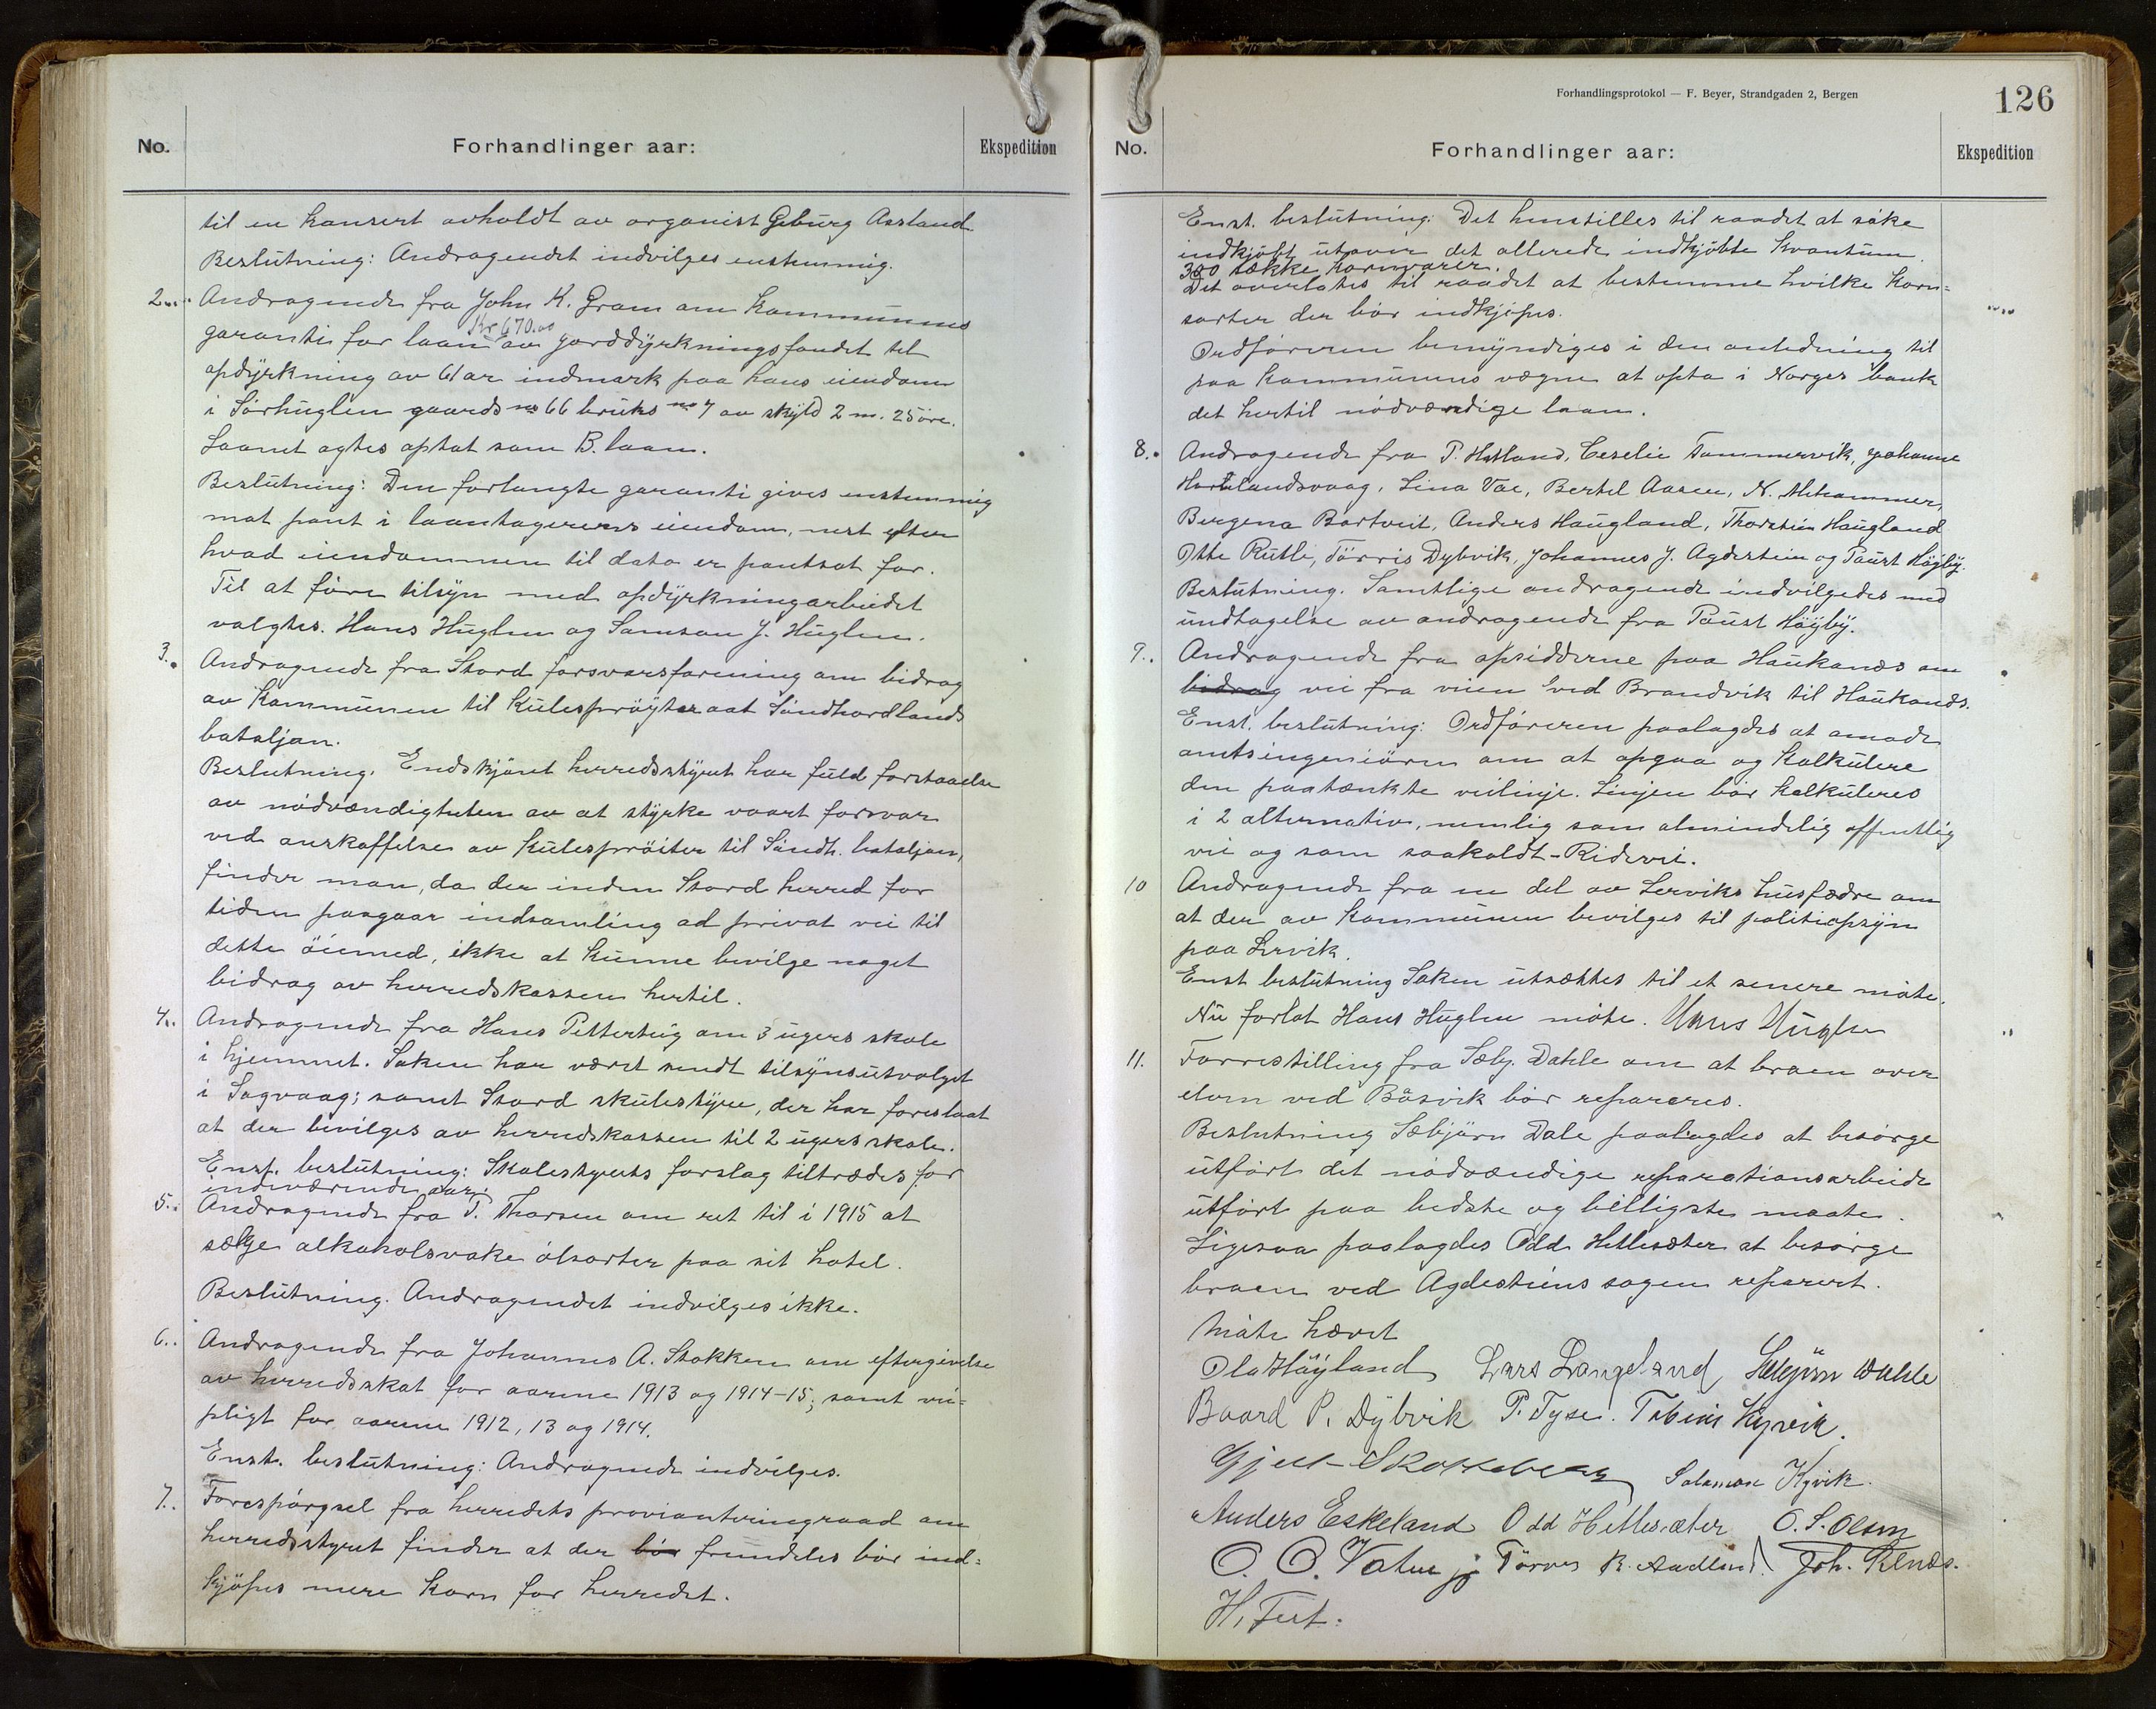 No.
Forhandlinger aar:
Ekspedition
til en konsert avholdt av organist Geburg Aasland
Beslutning: Andragendet indvilges enstemmig.
2. Andragende fra John K. Gram om kommunens
Kr 670.00
garanti for laan av jorddyrkningsfondet til
opdyrkning av 61 ar indmark paa hans eiendom
i Sørhuglen gaards no 66 bruks no 7 av skyld 2 m. 25 øre.
Laanet agtes optat som B. laan.
Beslutning: Den forlangte garanti gives enstemmig
mot pant i laantagerens eiendom, nest efter
hvad eiendommen til dato er pantsat for.
Til at føre tilsyn med opdyrkningarbeidet
valgtes. Hans Huglen og Samson J. Huglen.
3. Andragende fra Stord forsvarsforening om bidrag
av kommunen til kulesprøyter aat Søndhordlands
bataljon.
Beslutning. Endskjønt herredsstyret har fuld forstaaelse
av nødvændigheten av at styrke vaart forsvar
ved anskaffelse av kulesprøiter til Søndh. bataljon,
finder man, da der inden Stord herred for
tiden paagaar indsamling ad privat vei til
dette øiemed, ikke at kunne bevilge noget
bidrag av herredskassen hertil.
4. Andragende fra Hans Petterteig om 3 ugers skole
i hjemmet. Saken har været sendt tilsynsutvalget
i Sagvaag; samt Stord skulestyre, der har foreslaat
at der bevilges av herredskassen til 2 ugers skole.
Enst. beslutning: Skolestyrets forslag tiltrædes for
indeværende aar.
5. Andragende fra T. Thorsen om ret til i 1915 at
sælge alkoholsvake ølsorter paa sit hotel.
Beslutning. Andragendet indvilges ikke.
6. Andragende fra Johannes A. Stokken om eftergivelse
av herredsskat for aarene 1913 og 1914-15; samt vei=
pligt for aarene 1912, 13 og 1914.
Enst. beslutning: Andragende indvilges.
7. Forespørgsel fra herredets provianteringraad om
herredsstyret finder at der bör fremdeles bör ind=
kjøpes mere korn for herredet.
Forhandlingsprotokol — F. Beyer, Strandgaden 2, Bergen
126
No.
Forhandlinger aar:
Ekspedition
Enst. beslutning: Det henstilles til raadet at søke
indkjøpt utover det allerede indkjøbte kvantum
300 sække kornvarer.
Det overlates til raadet at bestemme hvilke korn=
sorter der bör indkjøpes.
Ordføreren bemyndiges i den anledning til
paa kommunens vegne at opta i Norges bank
det hertil nødvændige laan.
8. Andragende fra P. Hatland, Ceselie Tommervik, Johanne
Hortelandsvaag, Lina Vae, Bertel Aasen, N. Almhammer,
Bergena Bortveit, Anders Haugland, Thorstein Haugland
Otte Rutle, Tørris Dybvik, Johannes J. Agdestein og Paust Høyby.
Beslutning. Samtlige andragende indvilgedes med
undtagelse av andragende fra Paust Høyby.
9. Andragende fra opsidderne paa Haukanes om
bidrag vei fra veien ved Brandvik til Haukanes.
Enst. beslutning: Ordføreren paalagdes at anmode
amtsingeniøren om at opgaa og kalkulere
den paatænkte veilinje. Linjen bör kalkuleres
i 2 alternativ, nemlig som almindelig offentlig
vei og som saakaldt - Ridevei.
10 Andragende fra en del av Lerviks husfædre om
at der av kommunen bevilges til politiopsyn
paa Lervik.
Enst beslutning Saken utsættes til et senere møte.
Nu forlot Hans Huglen møte. Hans Huglen
11. Forrestilling fra Sæbj. Dahle om at broen over
elven ved Bäsvik bör repareres.
Beslutning Sæbjørn Dale paalagdes at besørge
utført det nødvændige reparationsarbeide
utført paa bedste og billigste maate.
Ligesaa paalagdes Odd Hetlesæter at besørge
broen ved Agdesteins sagen reparert.
Møte hævet
Ola Høyland Lars Langeland Sæbjørn Dahle
Baard P. Dybvik P. Tyse. Tobias Kyvik.
Gjert Skorpeberg Salamon Kyvik.
Anders Eskeland Odd Hetlesæter O. S. Olsen
O. O. Vatne jr Tørres R. Aadland. Joh. Rknes.
H. Tert.